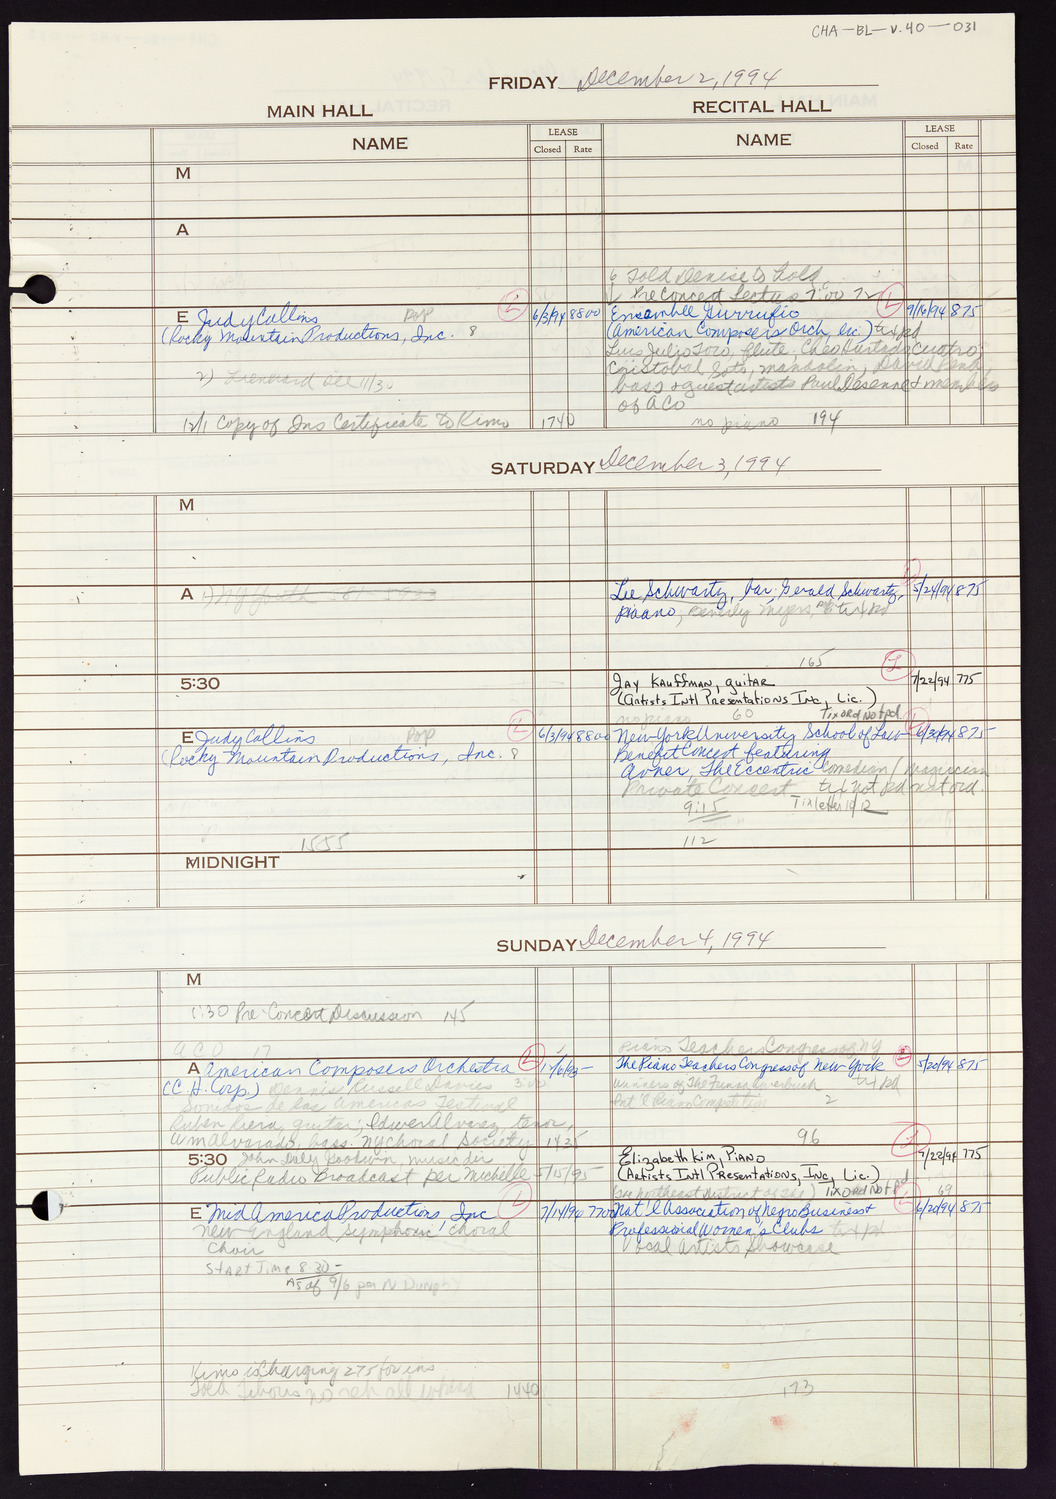 CHA-BL-V.40-031
FRIDAY December 2, 1994
MAIN HALL
RECITAL HALL
NAME
LEASE
Closed Rate
NAME
LEASE
Closed Rate
M
A
Told Denise to hold
Pre Concert Lecture 7:00
E Judy Collins Pop L 6/3/94 8800
(Rocky Mountain Productions, Inc. 8
11/30
12/1 Copy of Ins Certificate to Kimo 1740
Ensemble Gurrufio L 9/16/94 875
(American Composers Orch, Lic.) tix pd
Luis Julio Toro, flute, Cheo Hurtado Cuatro,
Cristobal Soto, mandolin, David Pena,
bass & guest artists Paul Desenne & members
of ACO
no piano 194
SATURDAY December 3, 1994
M
A 1) NY Youth
Lee Schwartz, bar; Gerald Schwartz, 5/24/94 875
piano, Beverly Myers, tix pd
165
5:30
Jay Kauffman, guitar L 7/22/94 775
(Artists Intl Presentations Inc, Lic.)
no piano 60 Tix ord Not pd
E Judy Collins Pop L 6/3/94 8800
(Rocky Mountain Productions, Inc. 8
1555
New York University School of Law 6/30/94 875
Benefit Concert featuring
Avner, The Eccentric Comedian / magician
Private Concert tix not pd not ord.
9:15 Tix letter 10/12
112
MIDNIGHT
SUNDAY December 4, 1994
M
1:30 Pre-Concert Discussion 145
ACO 17
A American Composers Orchestra L
(C.H. Corp.) Dennis Russell Davies
Sonidos de las Americas Festival
Ruben Riera, guitar; Idwer Alvarez, tenor,
Wm Alvarado, bass. NY Choral Society 1435
Piano Teachers Congress of NY
The Piano Teachers Congress of New York L 5/20/94 875
winners of The tix pd
Int'l Piano Competition 2
96
5:30 John Daly Goodwin, music dir
Public Radio Broadcast per Michelle 5/15/95
Elizabeth Kim, Piano L 9/22/94 775
(Artists Intl Presentations, Inc, Lic.)
Tix ord Not pd
69
E Mid America Productions, Inc L 7/14/94 7700
New England Symphonic Choral
Choir
Start Time 8:30-
As of 9/6 per N Dunn
Nat'l Association of Negro Business & L 6/20/94 875
Professional Women's Clubs tix pd
Vocal Artists Showcase
Kimo is charging 275 for ins
1440
173